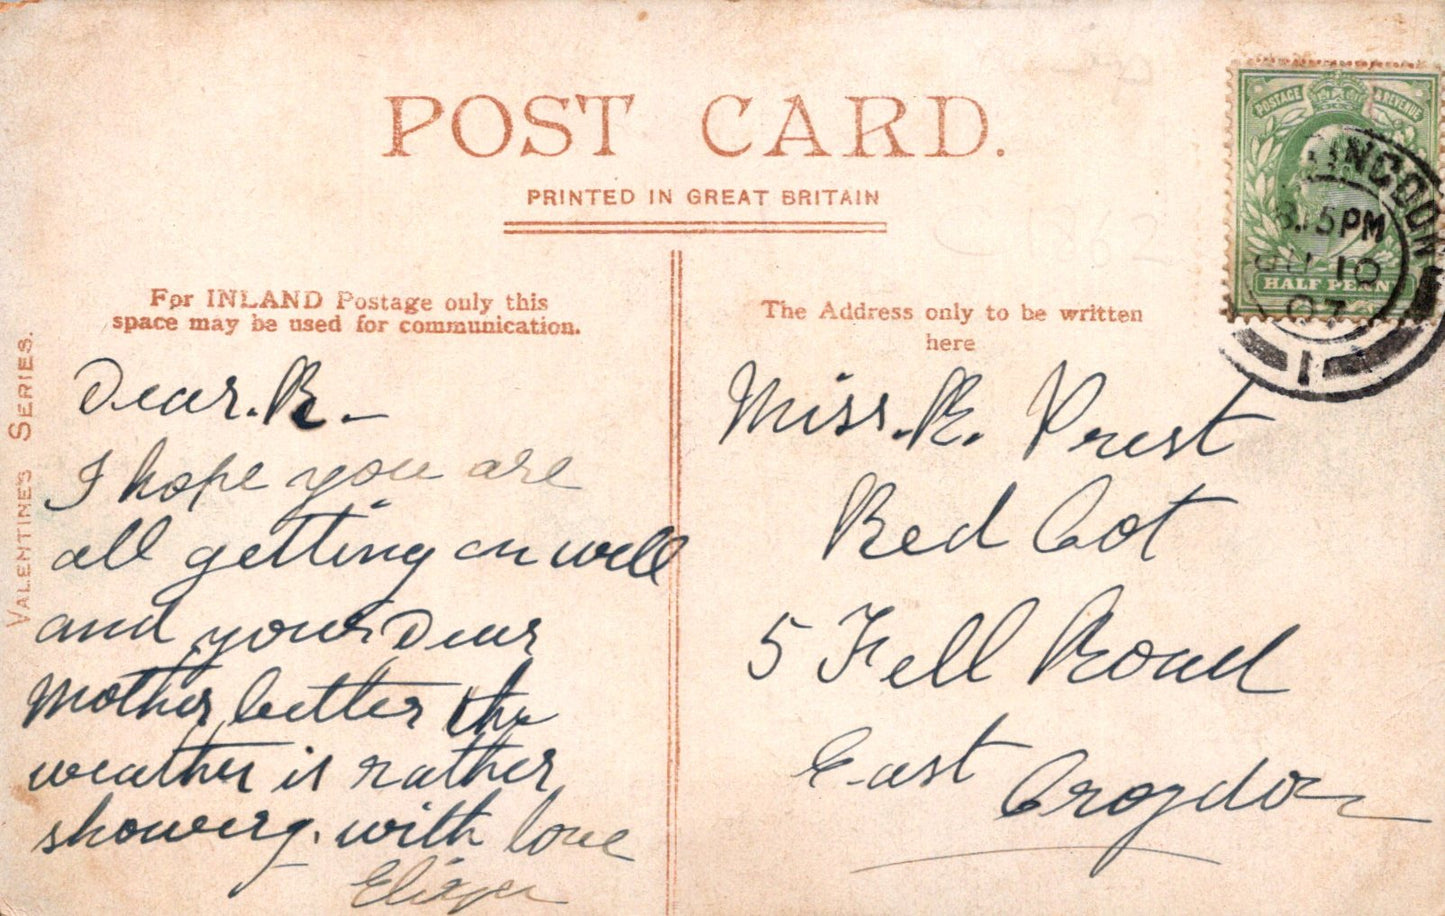 POST CARD.
PRINTED IN GREAT BRITAIN
For INLAND Postage only this
space may be used for communication.
The Address only to be written
here
VALENTINE'S SERIES.
Dear. R. —
I hope you are
all getting on well
and your Dear
Mother better the
weather is rather
showery. with love
Miss. R. Prest
Red Cot
5 Fell Road
East Croydon
POSTAGE & REVENUE
HALF PENNY
8.15PM
10
07
1